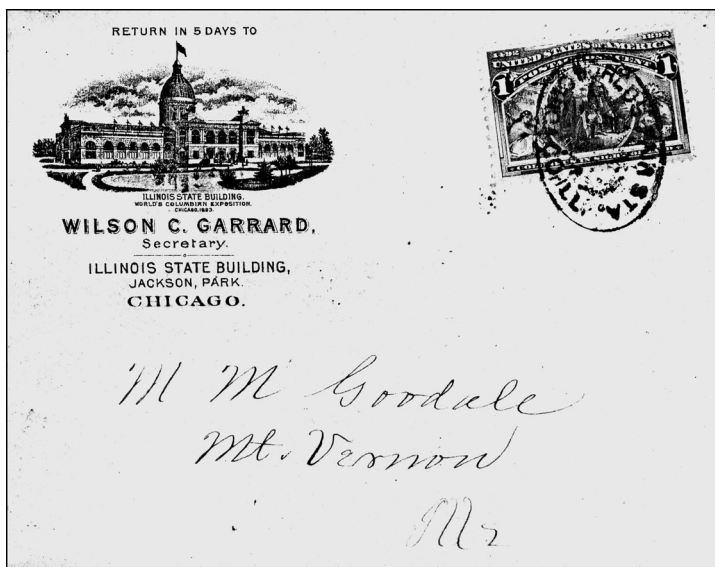 RETURN IN 5 DAYS TO
ILLINOIS STATE BUILDING.
WORLD'S COLUMBIAN EXPOSITION.
CHICAGO, 1893.
WILSON C. GARRARD,
Secretary.
ILLINOIS STATE BUILDING,
JACKSON, PARK.
CHICAGO.
1492 1892
UNITED STATES OF AMERICA
1 1
M M Goodale
Mt. Vernon